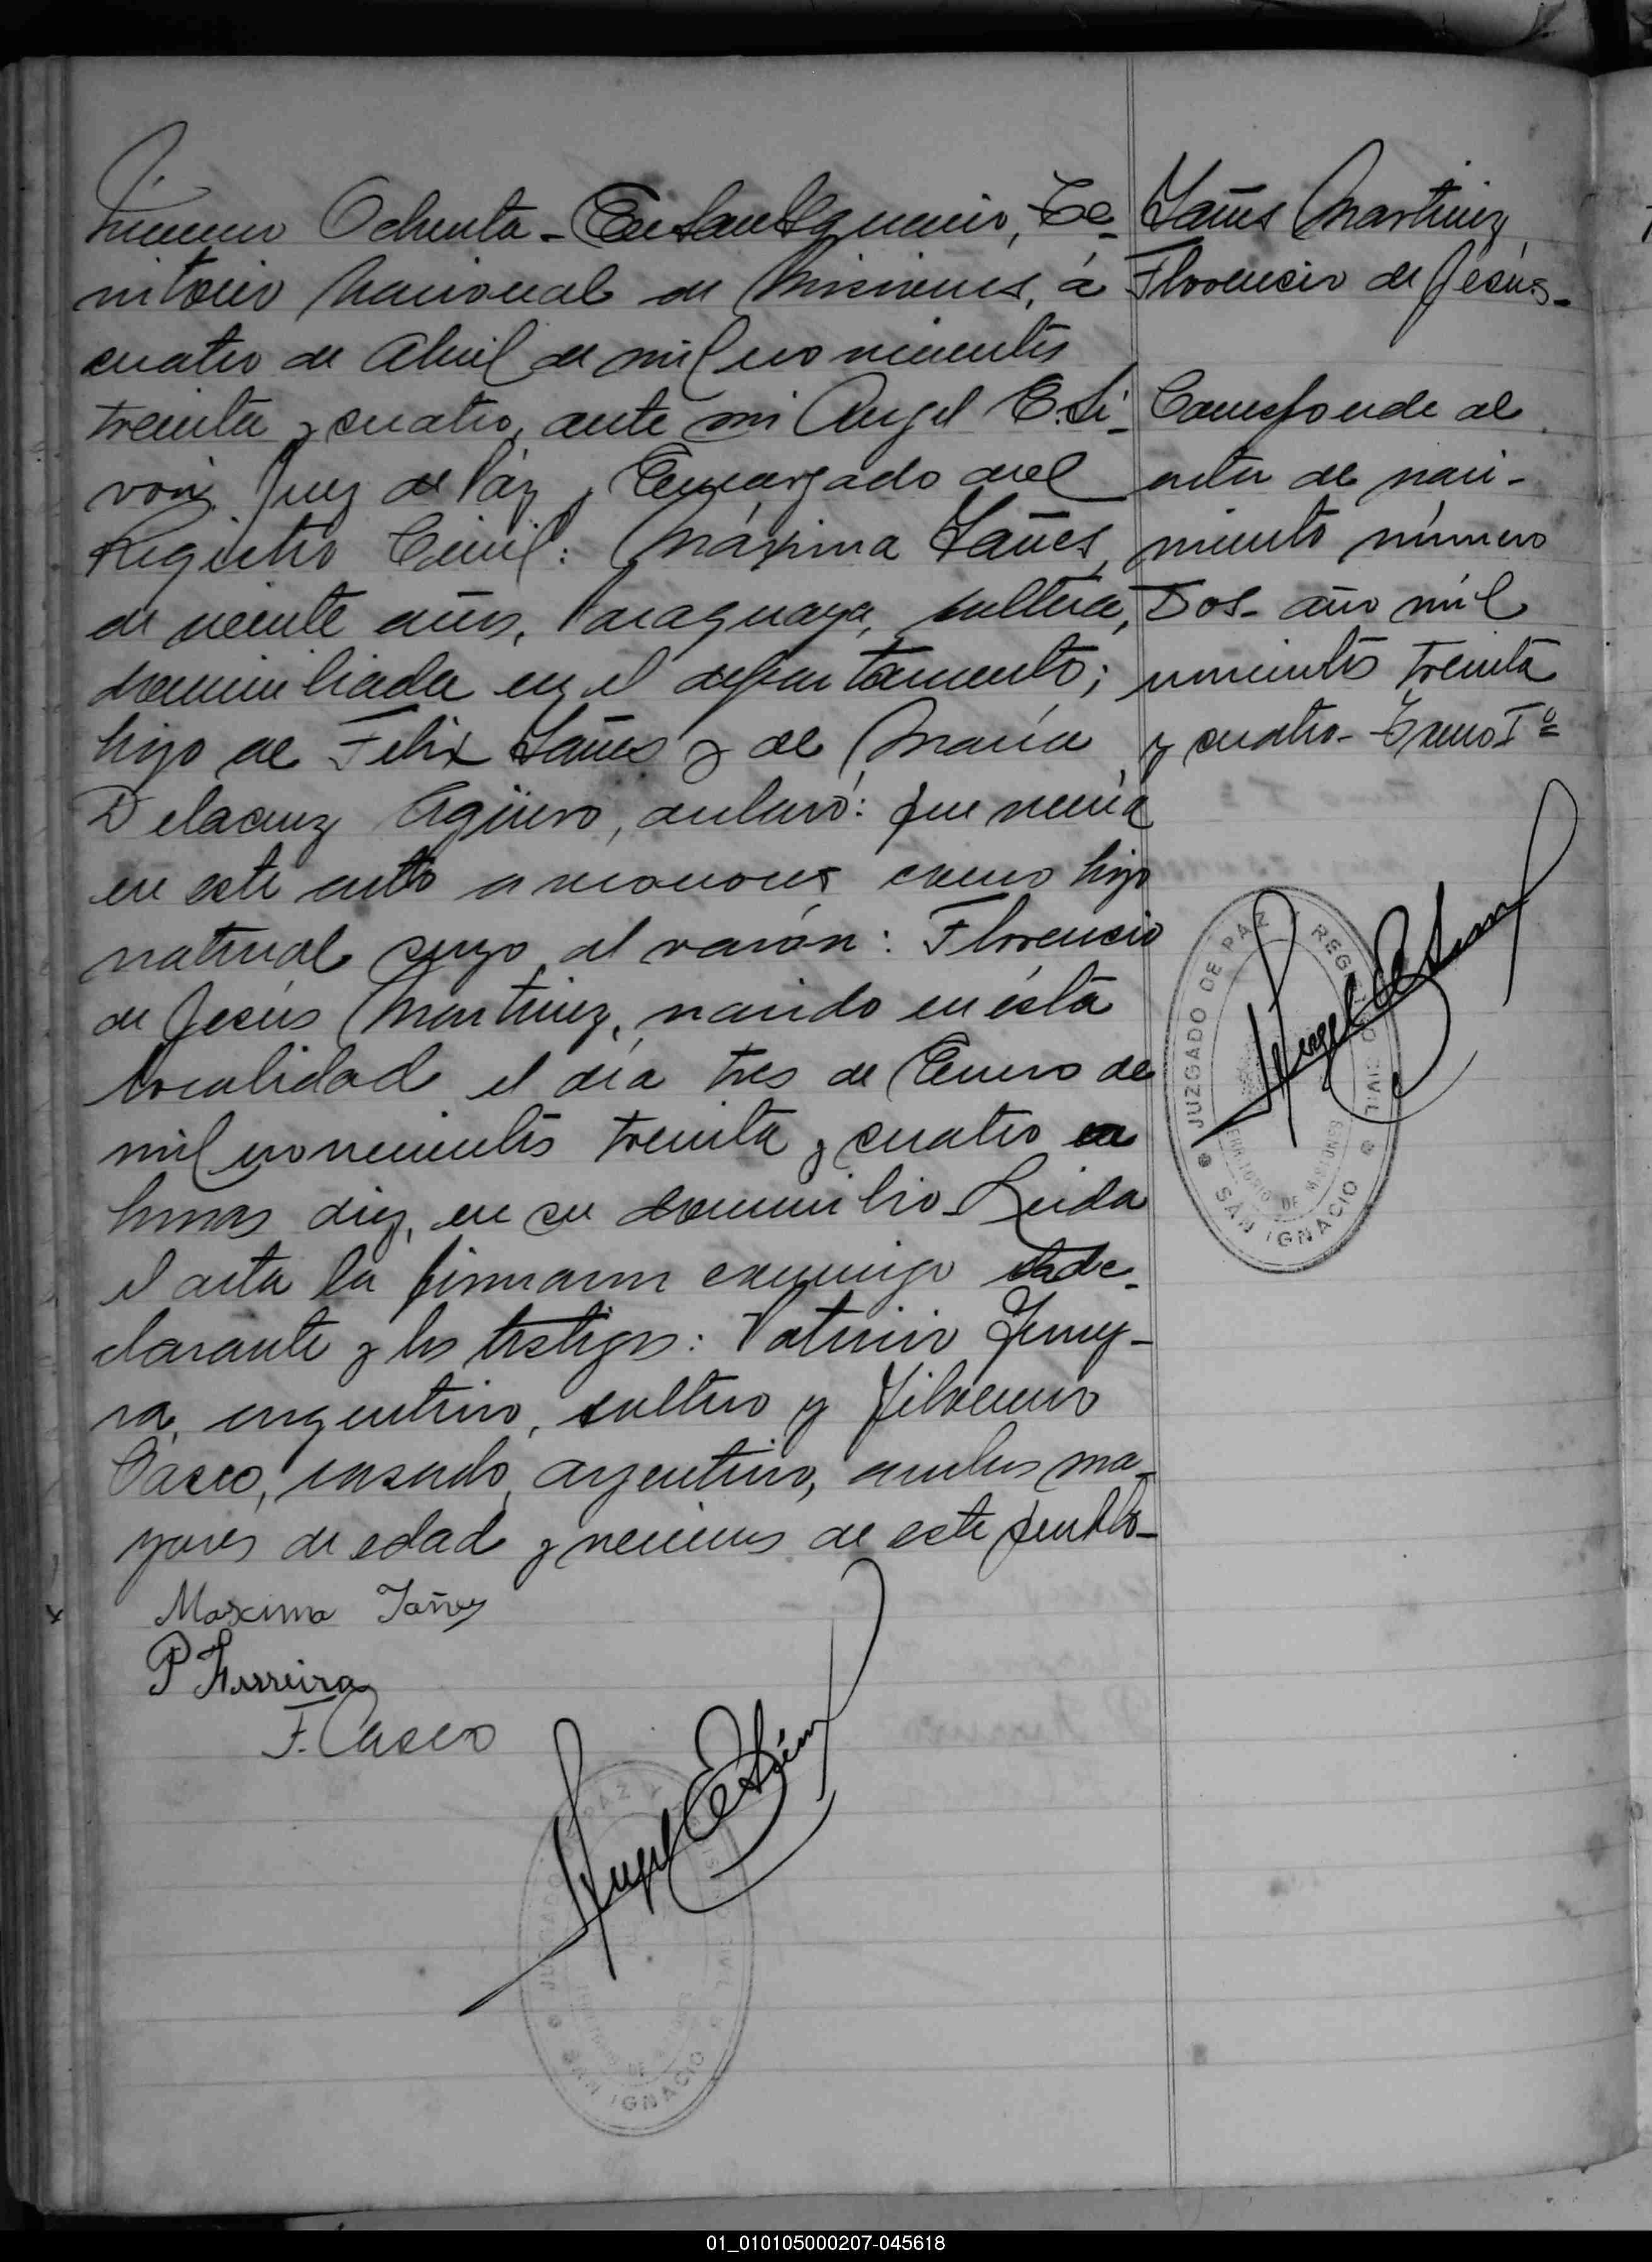 Número Ochenta - En San Ignacio, Te-
rritorio Nacional de Misiones, á
cuatro de Abril de mil novecientos
treinta y cuatro, ante mi Angel E.
Juez de Paz y Encargado del
Registro Civil: Máxima Yañes,
de veinte años, Paraguaya, soltera,
domiciliada en el departamento;
hijo de Felix Yañes y de María
Delacruz Agüero, declaró: que venía
en este acto a reconocer como hijo
natural suyo al varón: Florencio
de Jesús Martinez, nacido en ésta
localidad el día tres de Enero de
mil novecientos treinta y cuatro a
horas diez, en su domicilio - Leida
el acta la firmaron conmigo la de-
clarante y los testigos: Patricio Ferrey-
ra, argentino, soltero y
Casco, casado, argentino, ambos ma-
yores de edad y vecinos de este pueblo -
Maxima Yañez
P Ferreira
F. Casco
Yañes Martinez,
Florencio de Jesús -
Corresponde al
acta de naci-
miento número
Dos - año mil
novecientos treinta
y cuatro - Tomo Iº
JUZGADO DE PAZ Y REGISTRO CIVIL
TERRITORIO DE MISIONES
SAN IGNACIO
JUZGADO DE PAZ Y REGISTRO CIVIL
SAN IGNACIO
01_010105000207-045618